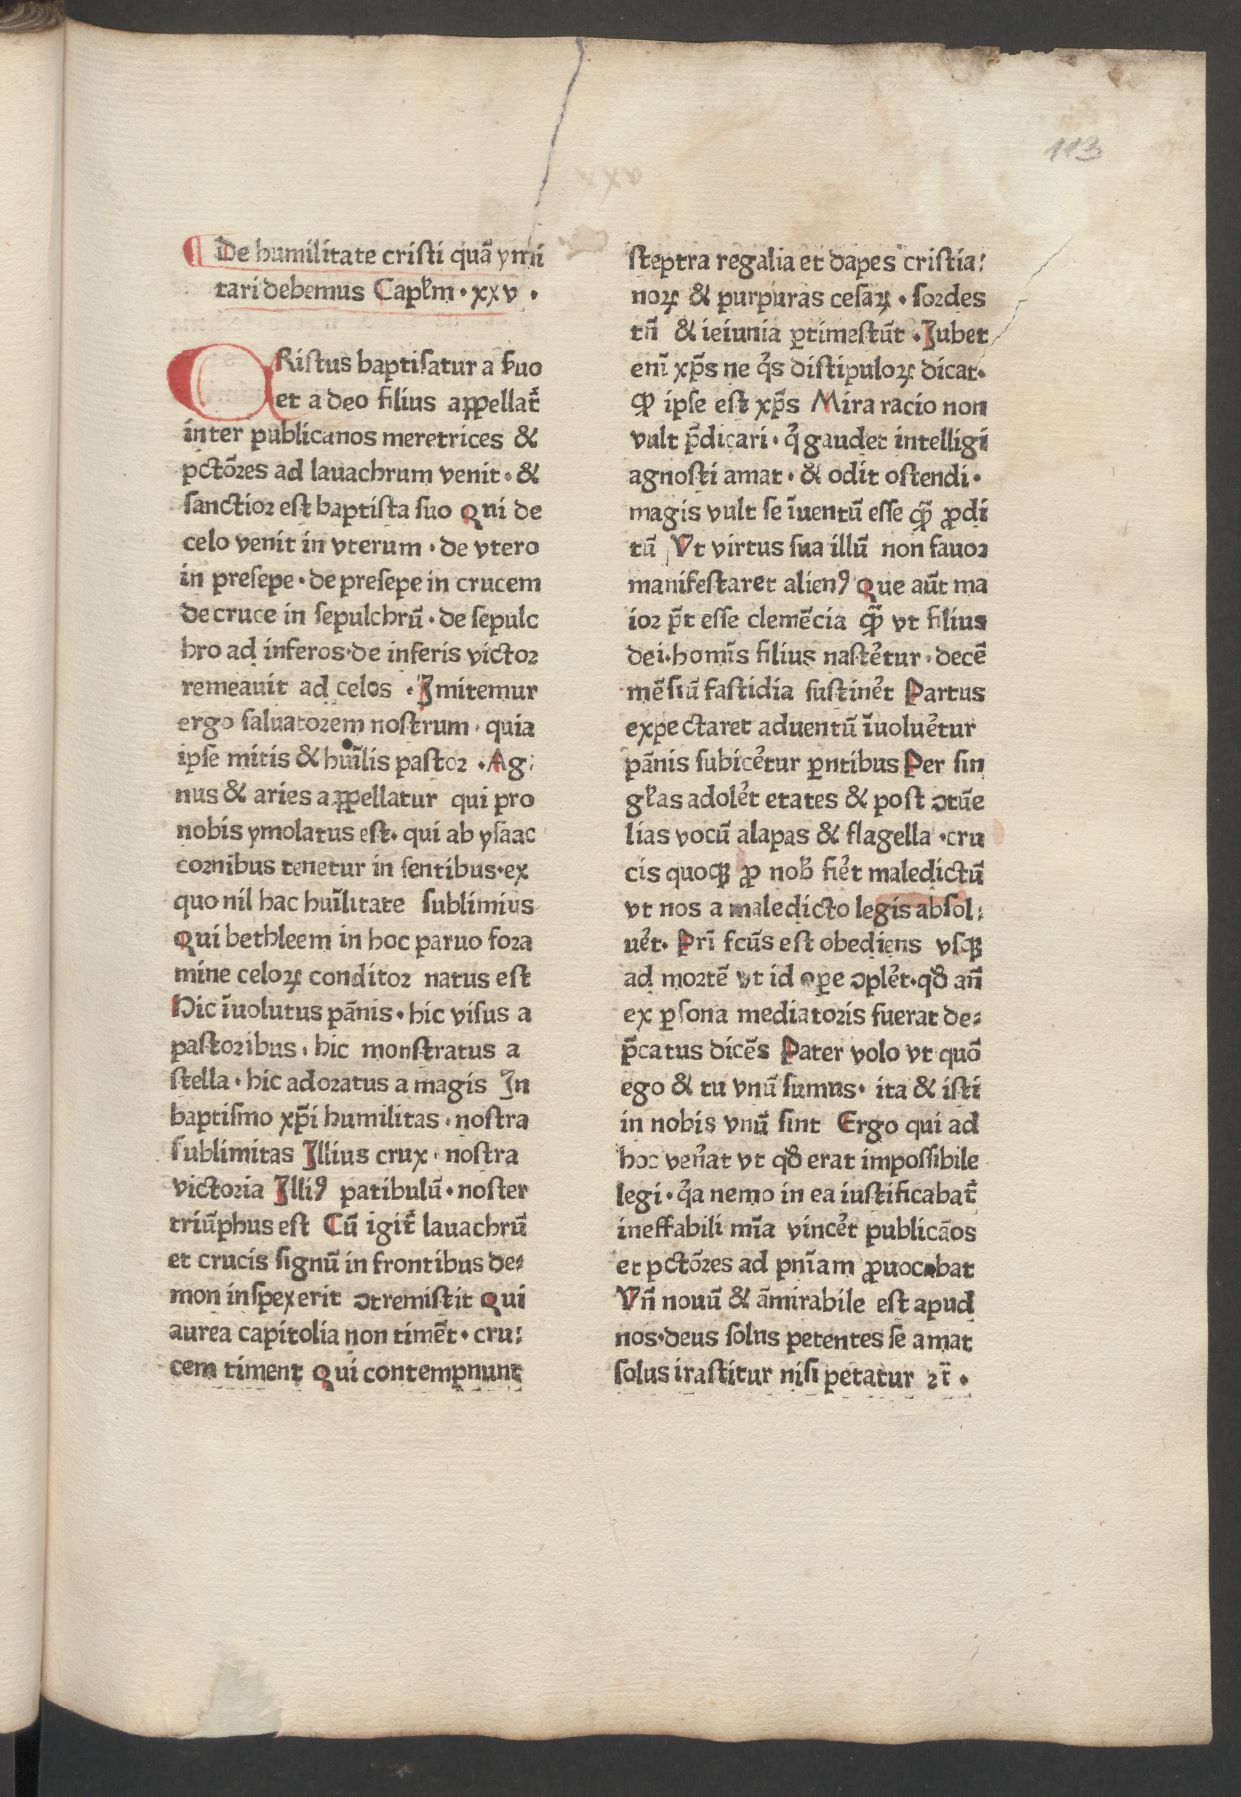 113
De humilitate cristi quā ymi
tari debemus Capłm · xxv ·
CRistus baptisatur a suo
et a deo filius appellat᷑
inter publicanos meretrices &
pctōres ad lauachrum venit · &
sanctior est baptista suo Qui de
celo venit in vterum · de vtero
in presepe · de presepe in crucem
de cruce in sepulchrū · de sepulc
hro ad inferos · de inferis victor
remeauit ad celos · Imitemur
ergo saluatorem nostrum · quia
ipse mitis & hūilis pastor · Ag:
nus & aries appellatur qui pro
nobis ymolatus est · qui ab ysaac
cornibus tenetur in sentibus · ex
quo nil hac hūilitate sublimius
Qui bethleem in hoc paruo fora
mine celoꝝ conditor natus est
Hic īuolutus pānis · hic visus a
pastoribus · hic monstratus a
stella · hic adoratus a magis In
baptismo xp̄i humilitas · nostra
sublimitas Illius crux · nostra
victoria Illiꝰ patibulū · noster
triūphus est Cū igit᷑ lauachrū
et crucis signū in frontibus de:
mon inspexerit ↄtremiscit Qui
aurea capitolia non timēt · cru:
cem timent Qui contempnunt
sceptra regalia et dapes cristia:
noꝝ & purpuras cesaꝝ · sordes
tn̄ & ieiunia ꝑtimescūt · Iubet
enī xp̄s ne q̇s discipuloꝝ dicat ·
Ꝙ ipse est xp̄s Mira racio non
vult p̄dicari · q̇ gaudet intelligi
agnosci amat · & odit ostendi ·
magis vult se īuentū esse ꝙ̄ ꝓdi
tū Vt virtus sua illū non fauor
manifestaret alienꝰ Que aūt ma
ior p̄t esse clemēcia ꝙ̄ vt filius
dei · homīs filius nascēt̉ur · decē
mēsiū fastidia sustine᷑t Partus
expectaret aduentū īuolue᷑tur
pānis subice᷑tur ꝑntibus Per sin
głas adole᷑t etates & post ↄtūe
lias vocū alapas & flagella · cru
cis quoqꝫ ꝓ nob᷒ fie᷑t maledictū
vt nos a maledicto legis absol:
ue᷑t · Pr̄i fcūs est obediens vsqꝫ
ad mortē vt id oꝑe ↄple᷑t · qꝺ an̄
ex ꝑsona mediatoris fuerat de:
p̄catus dicēs Pater volo vt quō
ego & tu vnū sumus · ita & isti
in nobis vnū sint Ergo qui ad
hoc ven᷑at vt qꝺ erat impossibile
legi · q̇a nemo in ea iustificabat᷑
ineffabili mīa vince᷑t publicāos
et pctōres ad pnīam ꝓuocabat
Vn̄ nouū & āmirabile est apud
nos · deus solus petentes se amat
solus irascitur nisi petatur ꝛc̄ ·